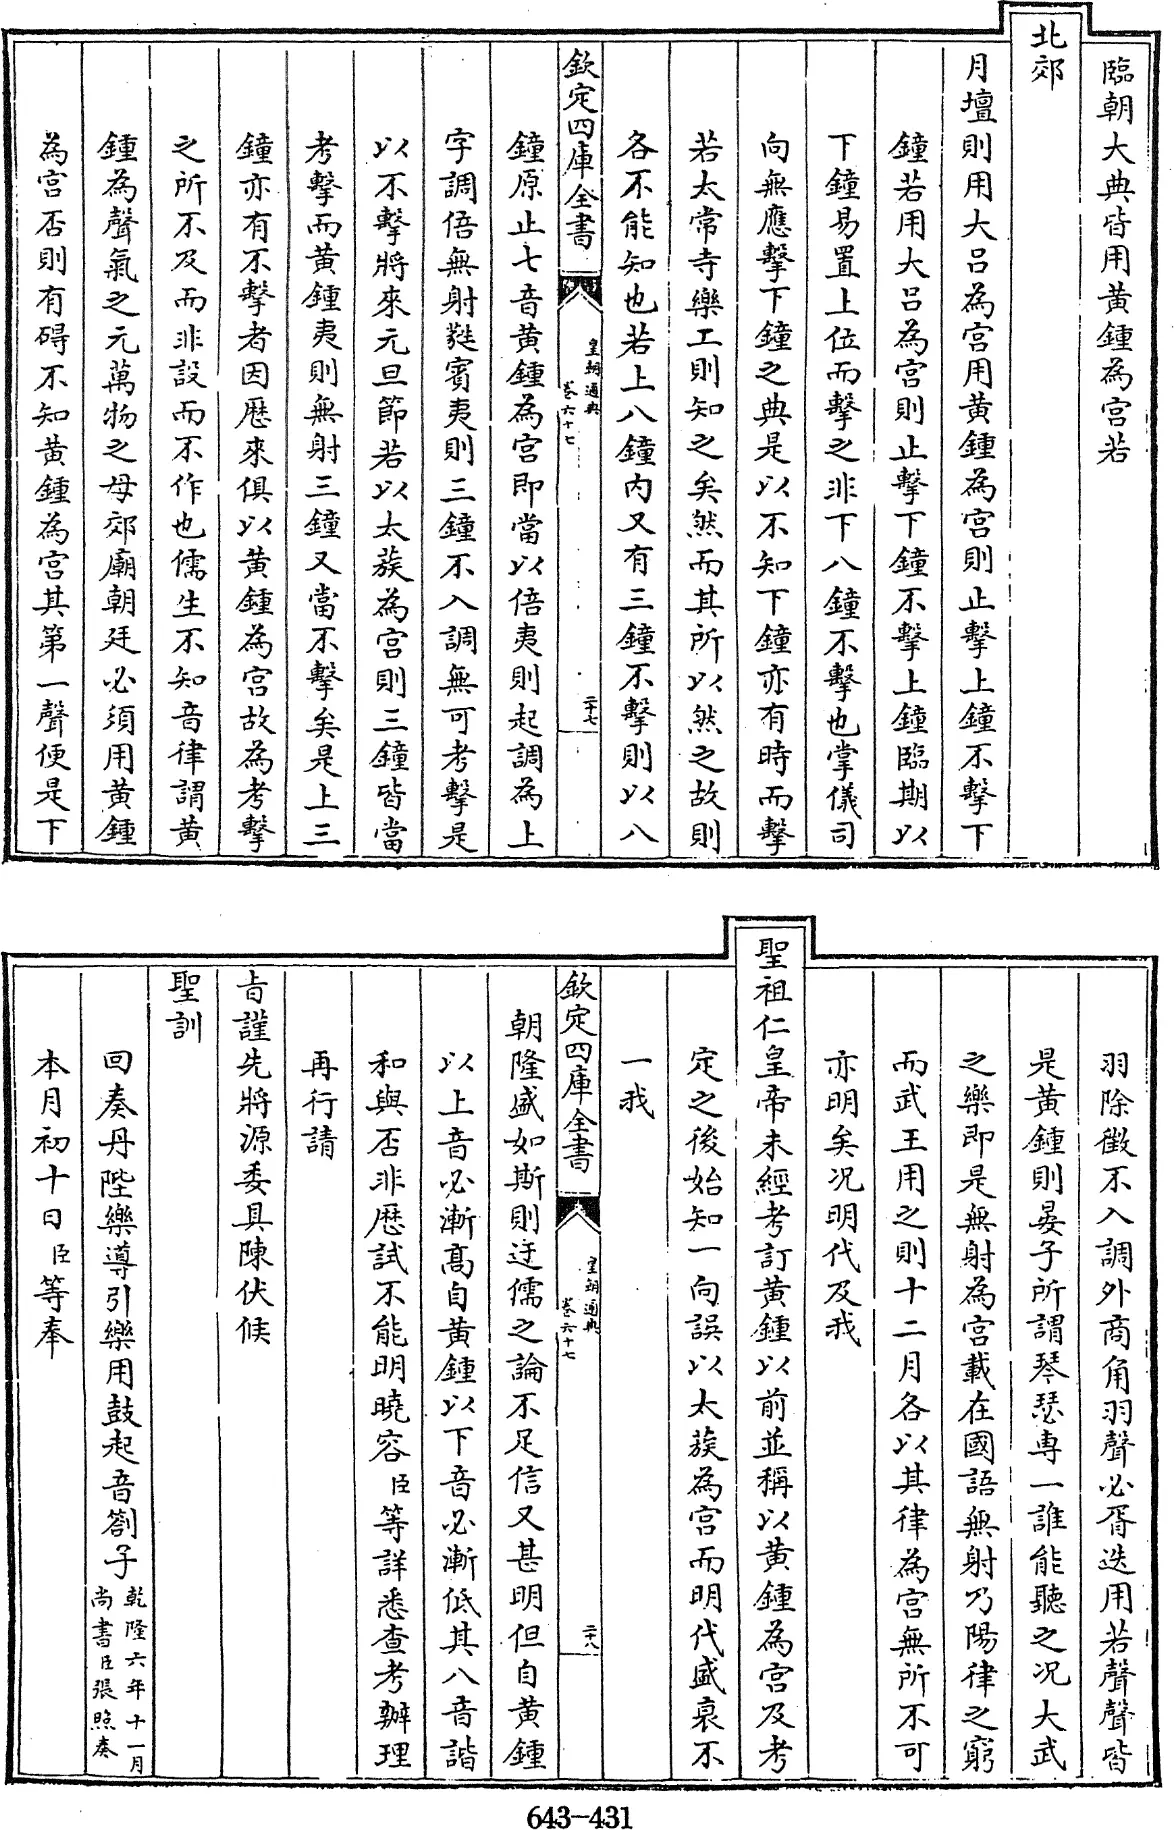 臨朝大典皆用黄鍾為宫若
北郊
月壇則用大吕為宫用黄鍾為宫則止擊上鐘不擊下
鐘若用大吕為宫則止擊下鐘不擊上鐘臨期以
下鐘易置上位而擊之非下八鐘不擊也掌儀司
向無應擊下鐘之典是以不知下鐘亦有時而擊
若太常寺樂工則知之矣然而其所以然之故則
各不能知也若上八鐘内又有三鐘不擊則以八
欽定四庫全書
皇朝通典
卷六十七
二十七
鐘原止七音黄鍾為宫即當以倍夷則起調為上
字調倍無射蕤賓夷則三鐘不入調無可考擊是
以不擊將來元旦節若以太蔟為宫則三鐘皆當
考擊而黄鍾夷則無射三鐘又當不擊矣是上三
鐘亦有不擊者因歴來俱以黄鍾為宫故為考擊
之所不及而非設而不作也儒生不知音律謂黄
鍾為聲氣之元萬物之母郊廟朝廷必須用黄鍾
為宫否則有碍不知黄鍾為宫其第一聲便是下
羽除徵不入調外商角羽聲必胥迭用若聲聲皆
是黄鍾則晏子所謂琴瑟専一誰能聽之况大武
之樂即是無射為宫載在國語無射乃陽律之窮
而武王用之則十二月各以其律為宫無所不可
亦明矣况明代及我
聖祖仁皇帝未經考訂黄鍾以前並稱以黄鍾為宫及考
定之後始知一向誤以太蔟為宫而明代盛衰不
一我
欽定四庫全書
皇朝通典
卷六十七
二十八
朝隆盛如斯則迂儒之論不足信又甚明但自黄鍾
以上音必漸髙自黄鍾以下音必漸低其八音諧
和與否非歴試不能明曉容臣等詳悉查考辦理
再行請
㫖謹先將源委具陳伏候
聖訓
回奏丹陛樂導引樂用鼓起音劄子乾隆六年十一月
尚書臣張照奏
本月初十日臣等奉
643-431